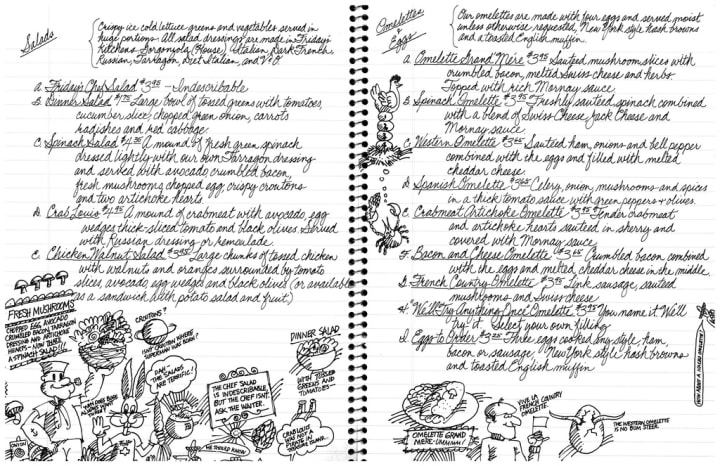 Salads
Crispy ice cold lettuce greens and vegetables served in
huge portions. All salad dressings are made in Friday's
kitchens. Gorgonzola (House), Italian, Dark French,
Russian, Tarragon, Diet Italian, and V&O.
A. Friday's Chef Salad $3.95 - Indescribable
B. Dinner Salad $1.75 Large bowl of tossed greens with tomatoes,
cucumber slice, chopped green onion, carrots
radishes and red cabbage.
C. Spinach Salad A mound of fresh green spinach
dressed lightly with our own Tarragon dressing
and served with avocado, crumbled bacon,
fresh mushrooms, chopped egg, crispy croutons
and two artichoke hearts.
D. Crab Louis $4.95 A mound of crabmeat with avocado, egg
wedges, thick-sliced tomato and black olives. Served
with Russian dressing or remoulade.
E. Chicken Walnut Salad Large chunks of tossed chicken
with walnuts and oranges surrounded by tomato
slices, avocado, egg wedges and black olives (or available
as a sandwich with potato salad and fruit)
FRESH MUSHROOMS
CHOPPED EGG, AVOCADO
CRUMBLED BACON, TARRAGON
DRESSING AND ARTICHOKE
HEARTS - NOW THERE'S
A SPINACH SALAD!
CROUTONS?
ISN'T CROUTON WHERE
SUPERMAN WAS BORN?
DAH-
THE SALADS
ARE TERRIFIC!
THE CHEF SALAD
IS INDESCRIBABLE,
BUT THE CHEF ISN'T.
ASK THE WAITER.
HE SHOULD KNOW
DINNER SALAD
WITH TOSSED
GREENS AND
TOMATOES
CRAB LOUIS
IS NOT A
PIRATE IN
TREASURE ISLAND.
Omelettes
& Eggs
Our omelettes are made with four eggs and served moist
unless otherwise requested, New York style hash browns
and a toasted English muffin.
A. Omelette Grand Mère $3.95 Sauteed mushroom slices with
crumbled bacon, melted Swiss cheese and herbs.
Topped with rich Mornay sauce.
B. Spinach Omelette $3.95 Freshly sauteed spinach combined
with a blend of Swiss Cheese Jack Cheese and
Mornay sauce.
C. Western Omelette Sauteed ham, onions and bell pepper
combined with the eggs and filled with melted
cheddar cheese.
D. Spanish Omelette Celery, onion, mushrooms and spices
in a thick tomato sauce with green peppers & olives.
E. Crabmeat Artichoke Omelette Tender crabmeat
and artichoke hearts sauteed in sherry and
covered with Mornay sauce
F. Bacon and Cheese Omelette Crumbled bacon combined
with the eggs and melted cheddar cheese in the middle.
G. French Country Omelette Link sausage, sauteed
mushrooms and Swiss cheese
H. "We'll Try Anything Once" Omelette $3.95 You name it. We'll
"try" it. Select your own filling.
I. Eggs to Order Three eggs cooked any style, ham,
bacon or sausage, New York style hash browns
and toasted English muffin
OMELETTE GRAND
MERE-
VIVE LA
FRENCH COUNTRY
OMELETTE.
THE WESTERN OMELETTE
IS NO BUM STEER.